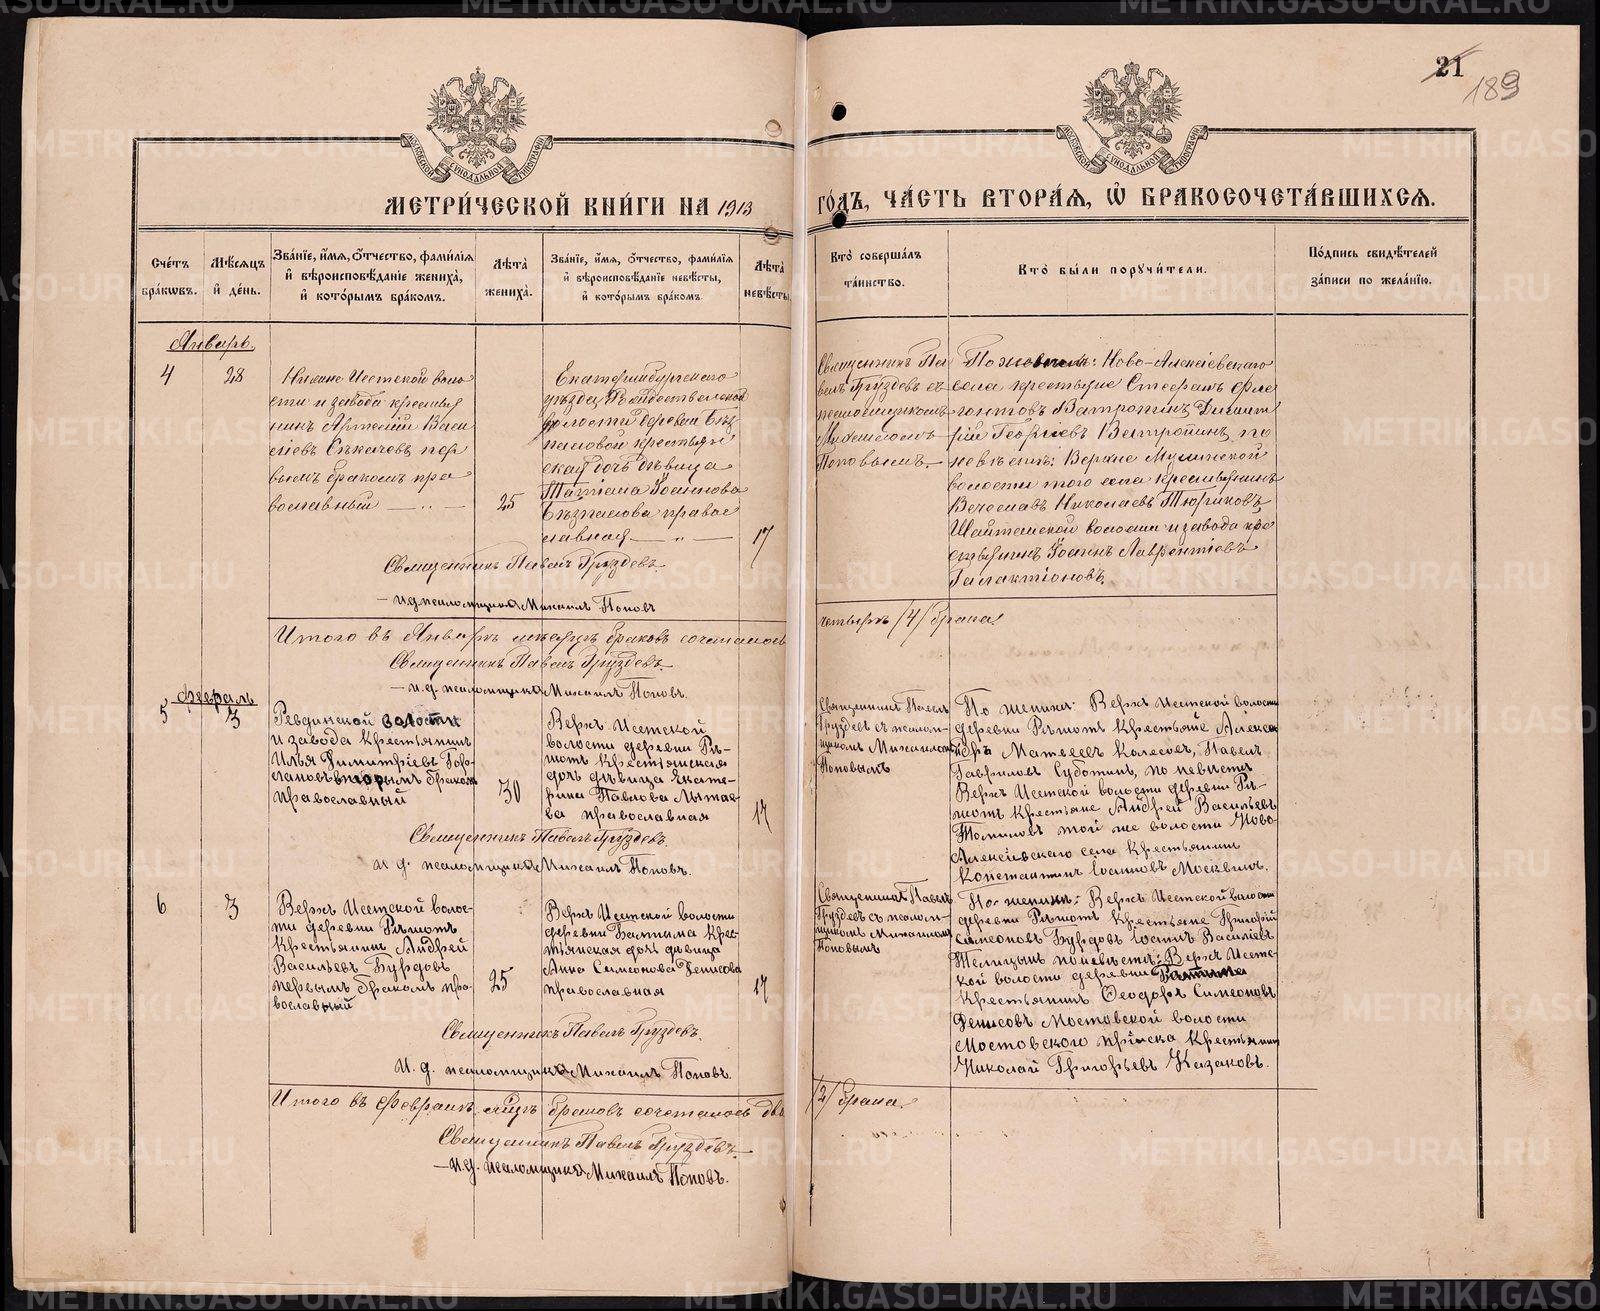 21
189
МОСКОВСКОЙ СѴНОДАЛЬНОЙ ТИПОГРАФІИ
МОСКОВСКОЙ СѴНОДАЛЬНОЙ ТИПОГРАФІИ
МЕТРИ́ЧЕСКОЙ КНИ́ГИ НА 1913
ГО́ДЪ, ЧА́СТЬ ВТОРА́Я, Ѽ БРАКОСОЧЕТА́ВШИХСЯ.
Сче́тъ бра́кѡвъ.
Мѣ́сяцъ и҆ де́нь.
Зва́нїе, и҆́мя, ѻ҆́тчество, фами́лїя и҆ вѣроисповѣ́данїе жениха̀, и҆ кото́рымъ бра́комъ.
Лѣ́та жениха̀.
Зва́нїе, и҆́мя, ѻ҆́тчество, фами́лїя и҆ вѣроисповѣ́данїе невѣ́сты, и҆ кото́рымъ бра́комъ.
Лѣ́та невѣ́сты.
Кто̀ соверша́лъ та́инство.
Кто̀ бы́ли порꙋчи́тели.
По́дпись свидѣ́телей за́писи по жела́нїю.
Январь.
4
28
Нижне Исетской воло
сти и завода крестья
нинъ Артемій Васи
ліевъ Секачевъ пер
вымъ бракомъ пра
вославный
25
Екатеринбургскаго
уѣзда, Рождественской
волости деревни
крестьян
ская дочь дѣвица
Татіана Іоаннова
право
славная
17
Священникъ Па
велъ Груздевъ съ
псаломщикомъ
Михаиломъ
Поповымъ.
По женихѣ: Ново-Алексіевскаго
села крестьяне Стефанъ
Ватропинъ, Димит
рій Георгіевъ Ватропинъ, по
невѣстѣ: Верхне
волости того села крестьянинъ
Вячеславъ Николаевъ Тюриковъ,
Шайтанской волости и завода кре
стьянинъ Іоаннъ Лаврентіевъ
Галактіоновъ.
Священникъ Павелъ Груздевъ.
и.д. псаломщика Михаилъ Поповъ
Итого въ Январѣ мѣсяцѣ браковъ сочеталось
четыре /4/ брака.
Священникъ Павелъ Груздевъ.
и.д. псаломщика Михаилъ Поповъ.
Февраль
5
3
Ревдинской волости
и завода крестьянинъ
Илья Димитріевъ
вторымъ бракомъ
православный
30
Верхъ Исетской
волости деревни Рѣ-
шотъ крестьянская
дочь дѣвица Екате-
рина Павлова
православная
17
Священникъ Павелъ
Груздевъ съ псалом-
щикомъ Михаиломъ
Поповымъ
По женихѣ: Верхъ Исетской волости
деревни Рѣшотъ крестьяне Алекса
ндръ Матвеевъ Колесовъ, Павелъ
Гавриловъ Субботинъ, по невѣстѣ
Верхъ Исетской волости деревни Рѣ-
шотъ крестьяне Андрей Васильевъ
Томиловъ той же волости Ново-
Алексіевскаго села крестьянинъ
Константинъ Іоанновъ Москвинъ.
Священникъ Павелъ Груздевъ.
и. д. псаломщика Михаилъ Поповъ.
6
3
Верхъ Исетской волос-
ти деревни Рѣшотъ
крестьянинъ Андрей
Васильевъ Бурдовъ
первымъ бракомъ пра-
вославный
25
Верхъ Исетской волости
деревни Балтыма крес-
тьянская дочь дѣвица
Анна Симеонова Денисова
православная
17
Священникъ Павелъ
Груздевъ съ псалом-
щикомъ Михаиломъ
Поповымъ
По женихѣ: Верхъ Исетской волости
деревни Рѣшотъ крестьяне Григорій
Симеоновъ Бурдовъ Іоаннъ Василіевъ
по невѣстѣ: Верхъ Исетс-
кой волости деревни
крестьянинъ Ѳеодоръ Симеоновъ
Денисовъ Мостовской волости
Мостовского пріиска крестьянинъ
Николай Григорьевъ Казаковъ.
Священникъ Павелъ Груздевъ.
И. д. псаломщика Михаилъ Поповъ.
Итого въ Февралѣ мѣсяцѣ браковъ сочеталось два
/2/ брака.
Священникъ Павелъ Груздевъ.
и.д. псаломщика Михаилъ Поповъ.
METRIKI.GASO-URAL.RU